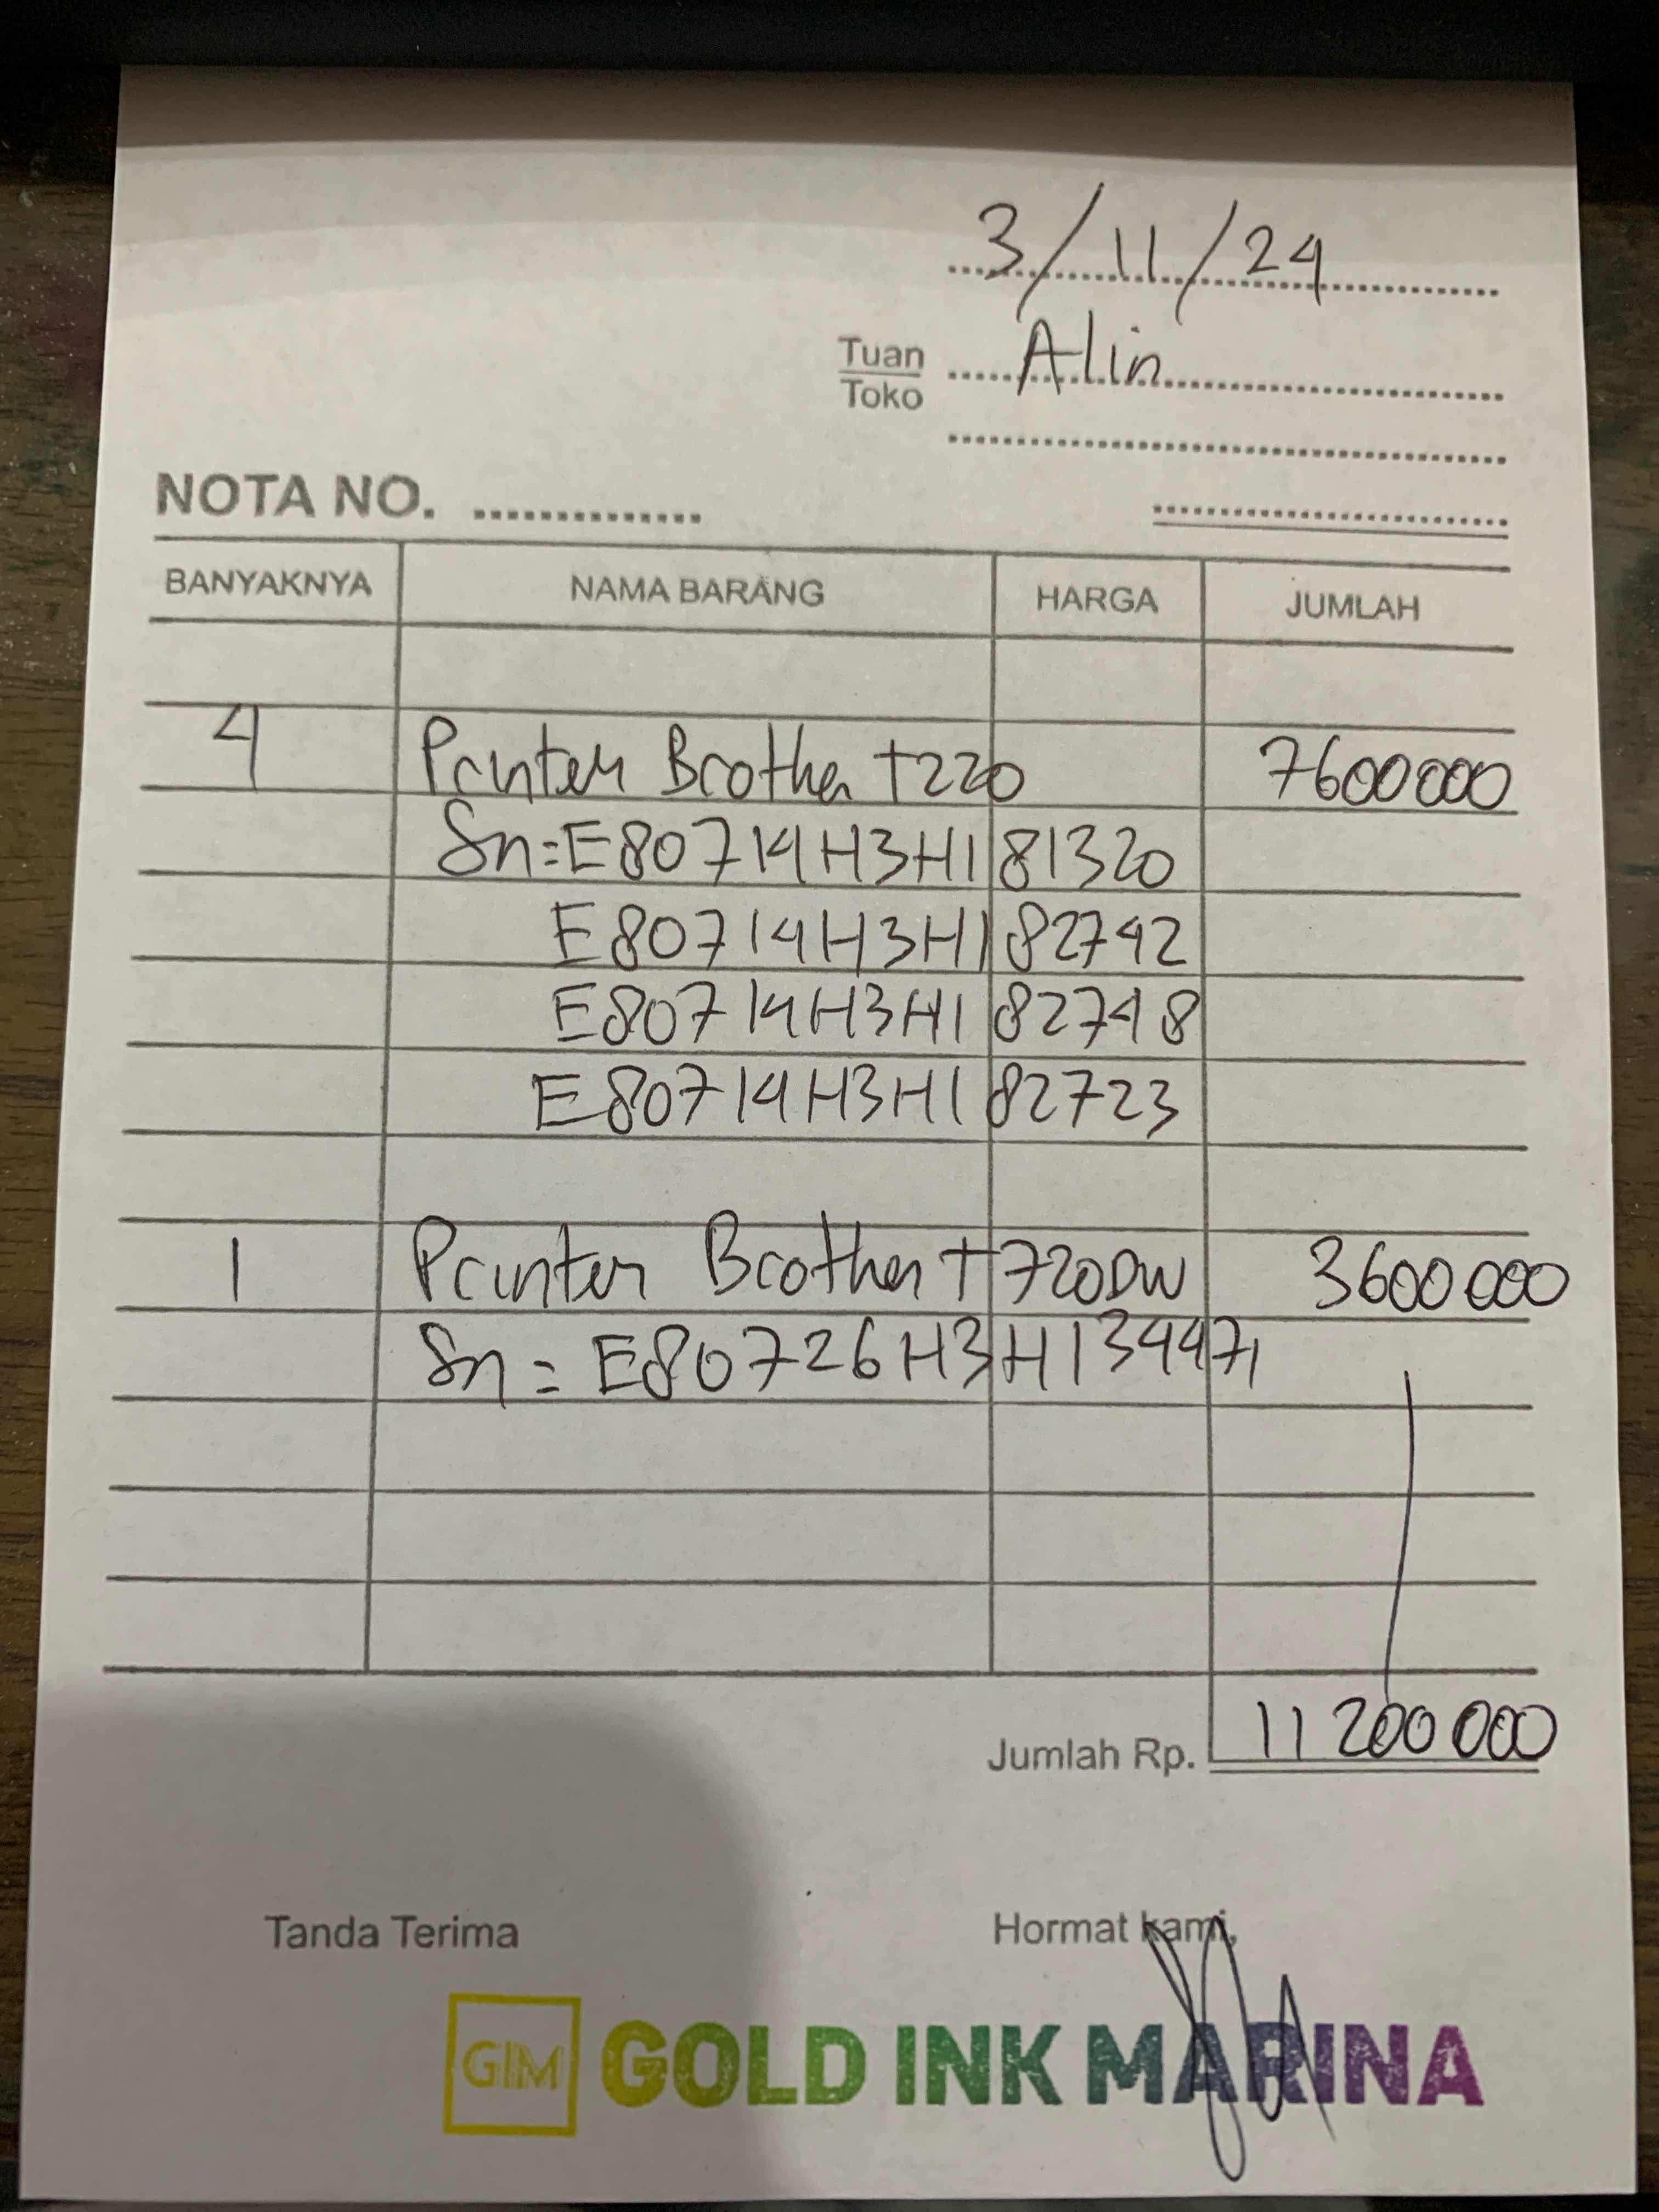 3/11/24
Tuan Alin
Toko
NOTA NO.
BANYAKNYA NAMA BARANG HARGA JUMLAH
4 Printer Brother t220 7600000
Sn=E80714H3H181320
E80714H3H182742
E80714H3H182748
E80714H3H182723
1 Printer Brother t720DW 3600000
Sn=E80726H3H134471
Jumlah Rp. 11200000
Tanda Terima Hormat kami,
GIM GOLD INK MARINA